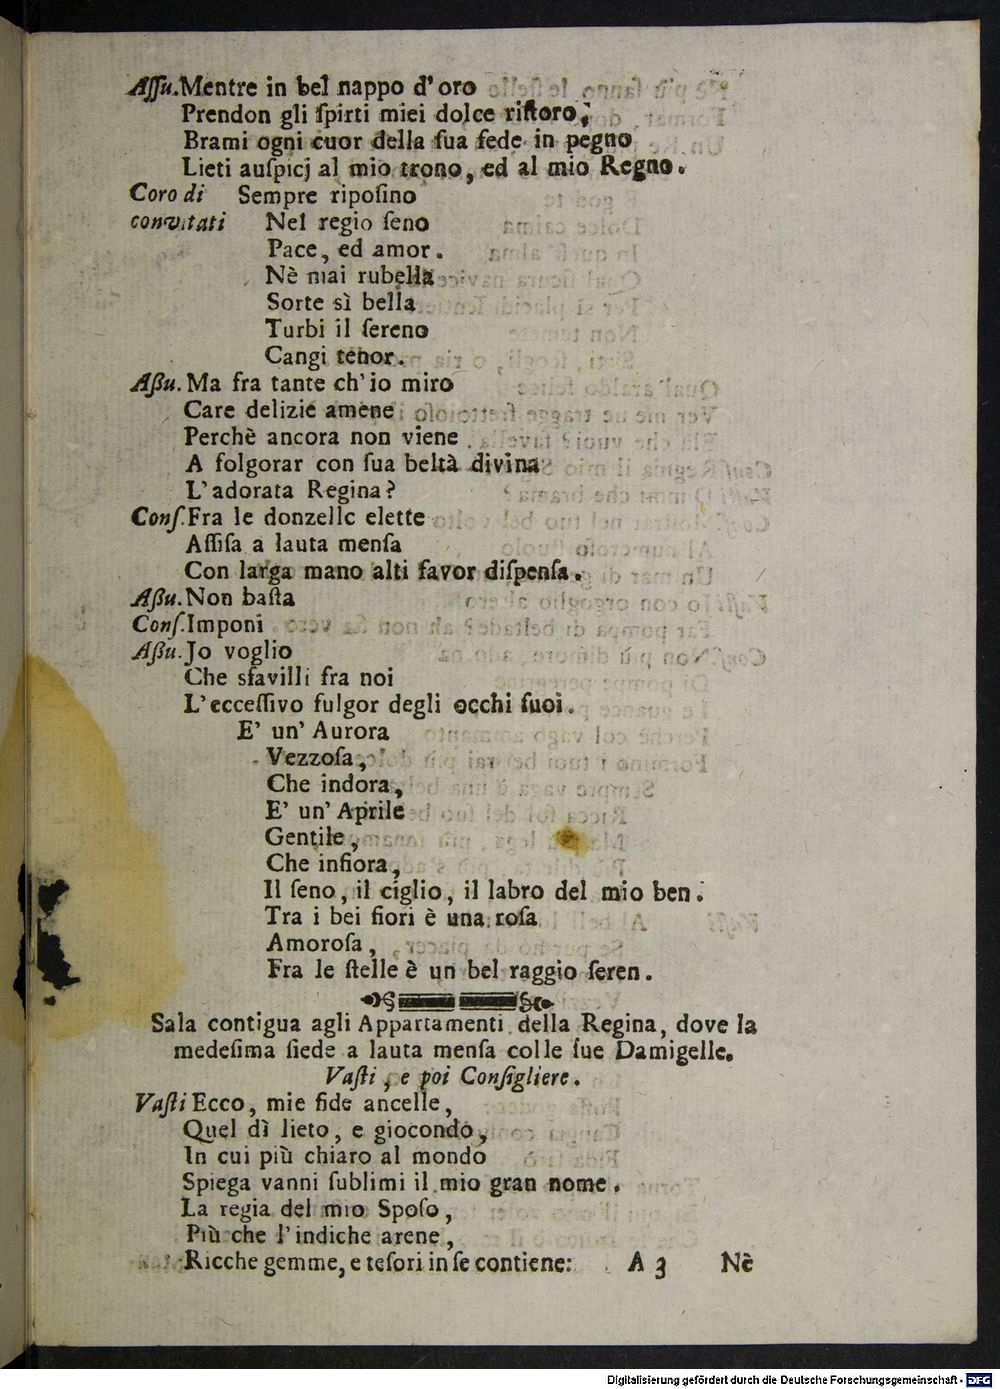 Aſſu. Mentre in bel nappo d' oro
Prendon gli ſpirti miei dolce riſtoro;
Brami ogni cuor della ſua fede in pegno
Lieti auſpicj al mio trono, ed al mio Regno.
Coro di Sempre ripoſino
convitati Nel regio ſeno
Pace, ed amor.
Nè mai rubella
Sorte sì bella
Turbi il ſereno
Cangi tenor.
Aßu. Ma fra tante ch' io miro
Care delizie amene
Perchè ancora non viene
A folgorar con ſua beltà divina
L' adorata Regina?
Conſ. Fra le donzelle elette
Aſſiſa a lauta menſa
Con larga mano alti favor diſpenſa.
Aßu. Non baſta
Conſ. Imponi
Aßu. Jo voglio
Che sfavilli fra noi
L' ecceſſivo fulgor degli occhi ſuoi.
E' un' Aurora
Vezzoſa,
Che indora,
E' un' Aprile
Gentile,
Che infiora,
Il ſeno, il ciglio, il labro del mio ben.
Tra i bei fiori è una roſa
Amoroſa,
Fra le ſtelle è un bel raggio ſeren.
Sala contigua agli Appartamenti della Regina, dove la
medeſima ſiede a lauta menſa colle ſue Damigelle.
Vaſti, e poi Conſigliere.
Vaſti Ecco, mie fide ancelle,
Quel dì lieto, e giocondo,
In cui più chiaro al mondo
Spiega vanni ſublimi il mio gran nome.
La regia del mio Spoſo,
Più che l' indiche arene,
Ricche gemme, e teſori in ſe contiene:
A 3 Nè
Digitalisierung gefördert durch die Deutsche Forschungsgemeinschaft - DFG